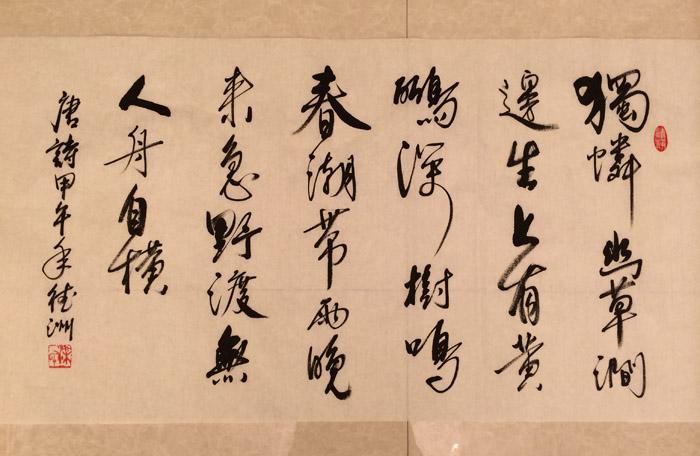 獨憐幽草澗
邊生上有黃
鸝深樹鳴
春潮帶雨晚
來急野渡無
人舟自橫
唐詩甲午年洲